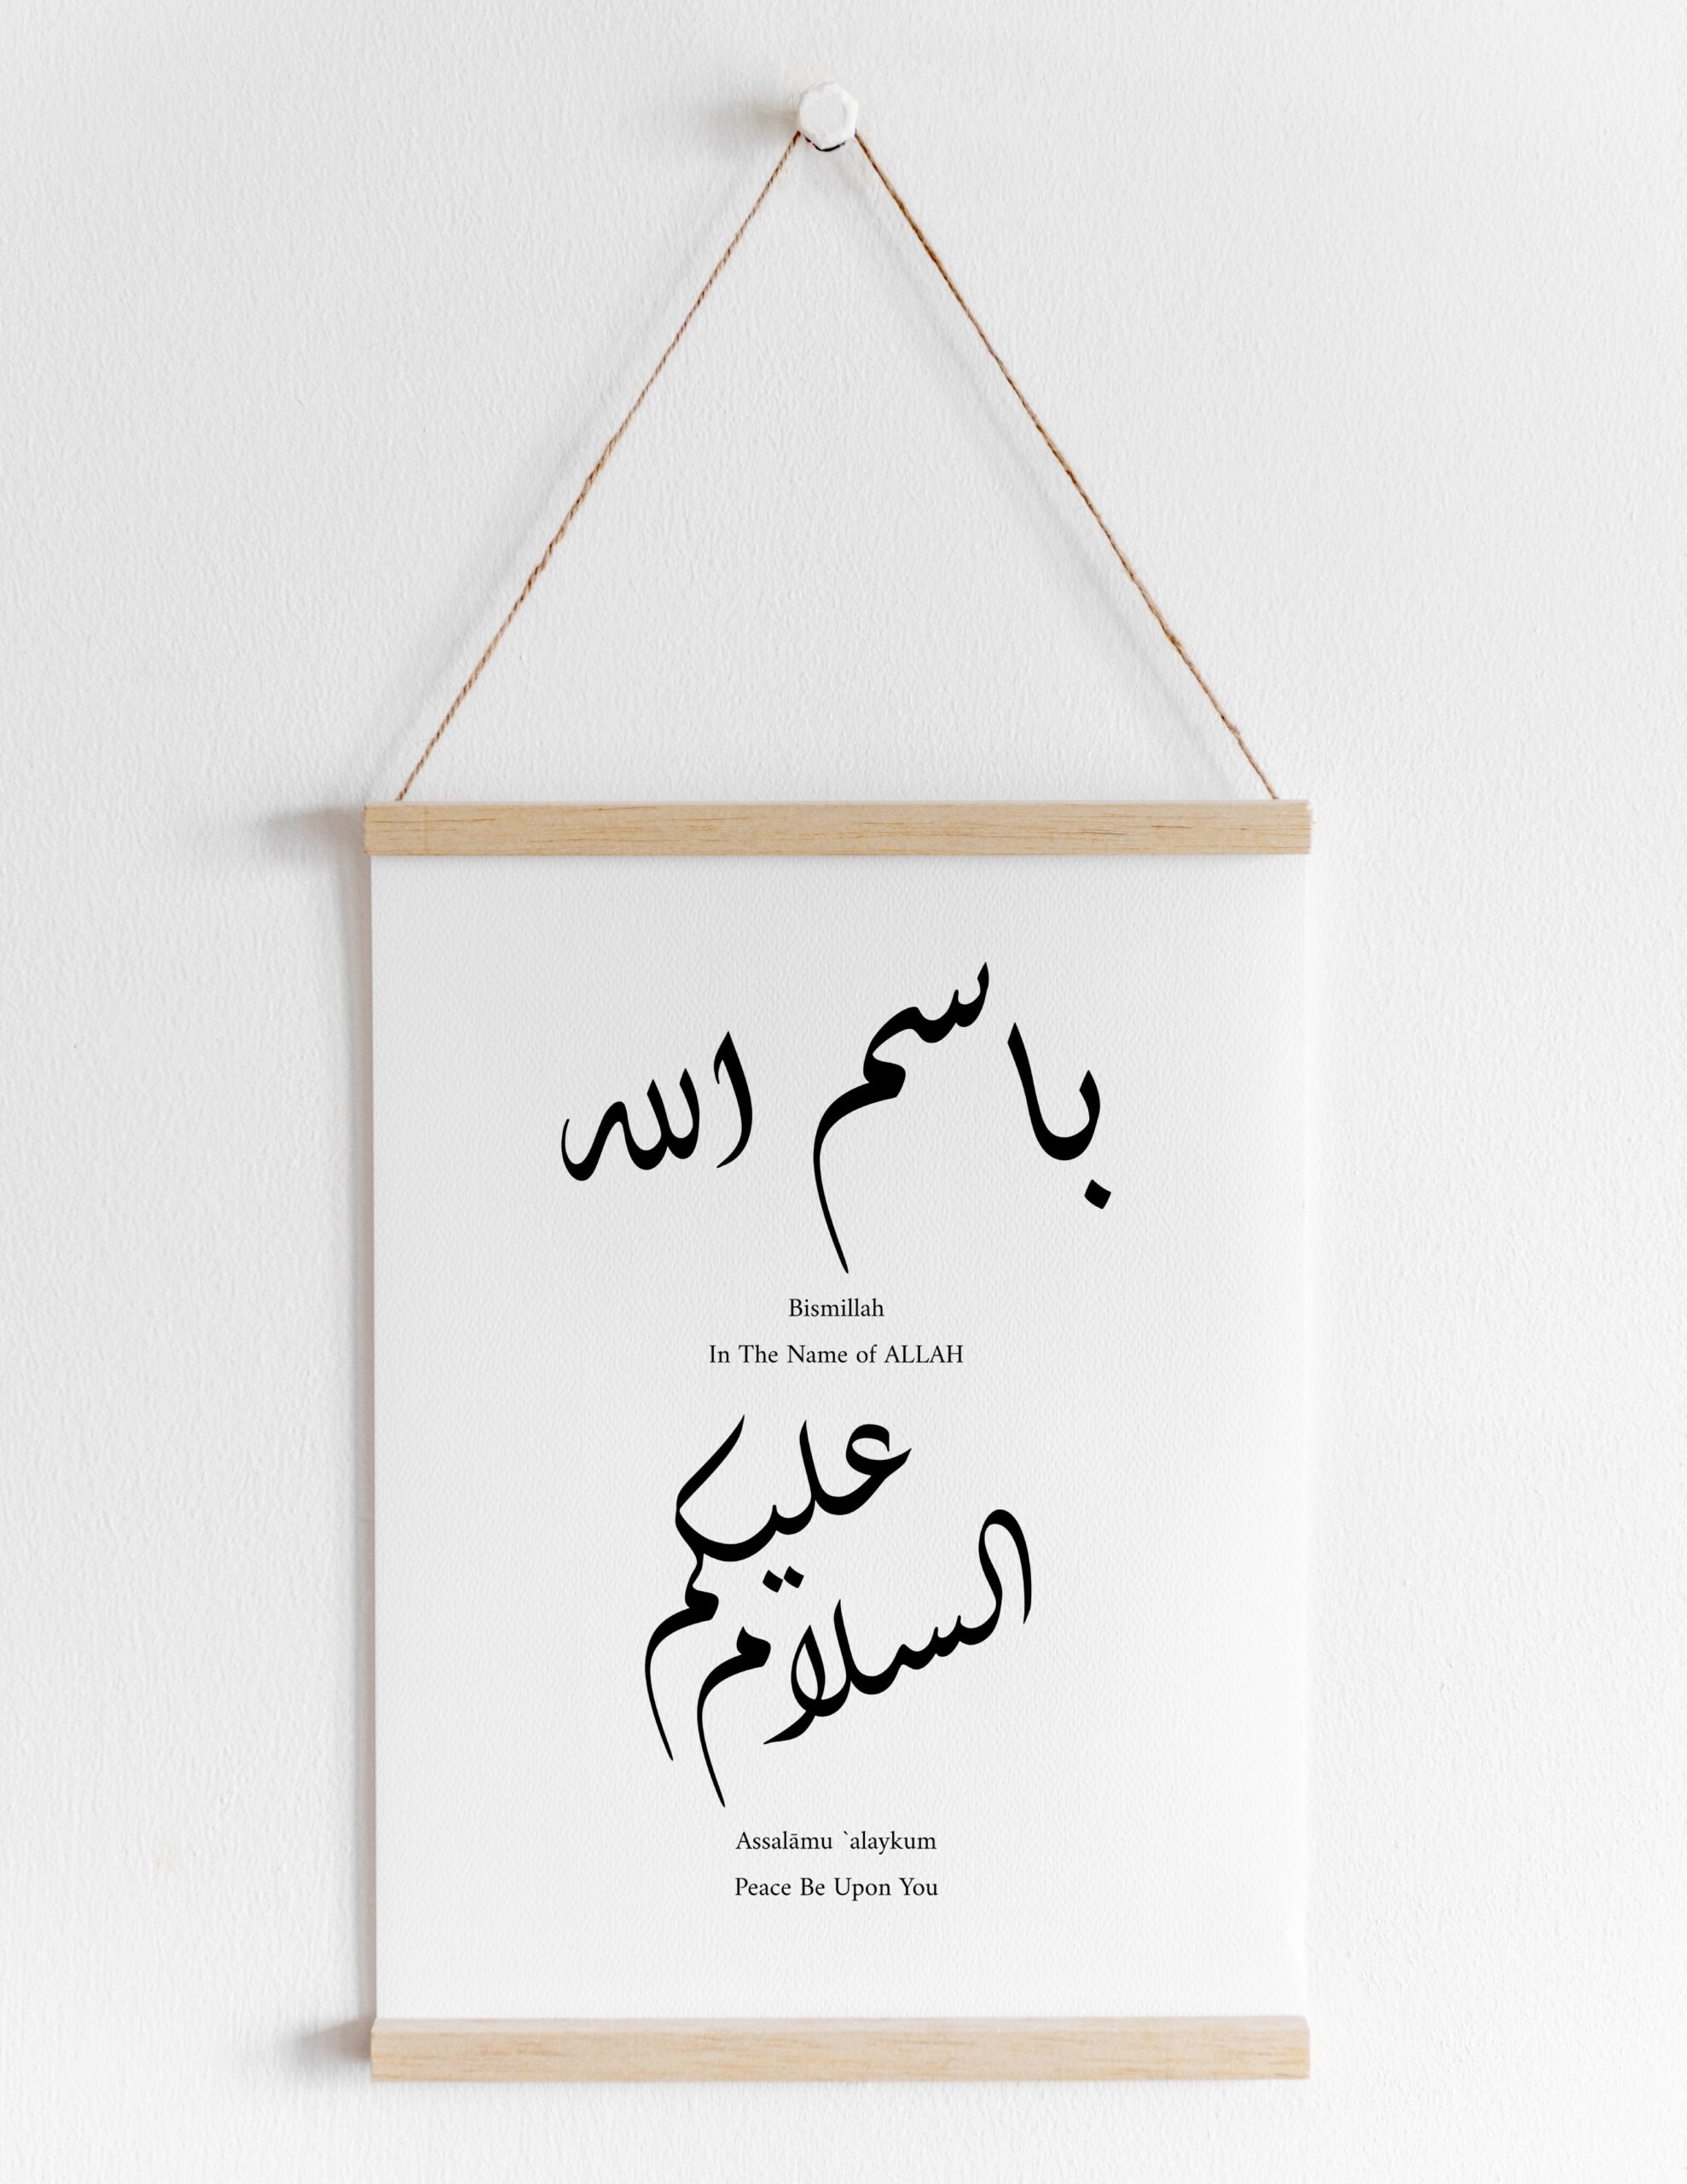 باسم الله
Bismillah
In The Name of ALLAH
عليكم
السلام
Assalāmu `alaykum
Peace Be Upon You